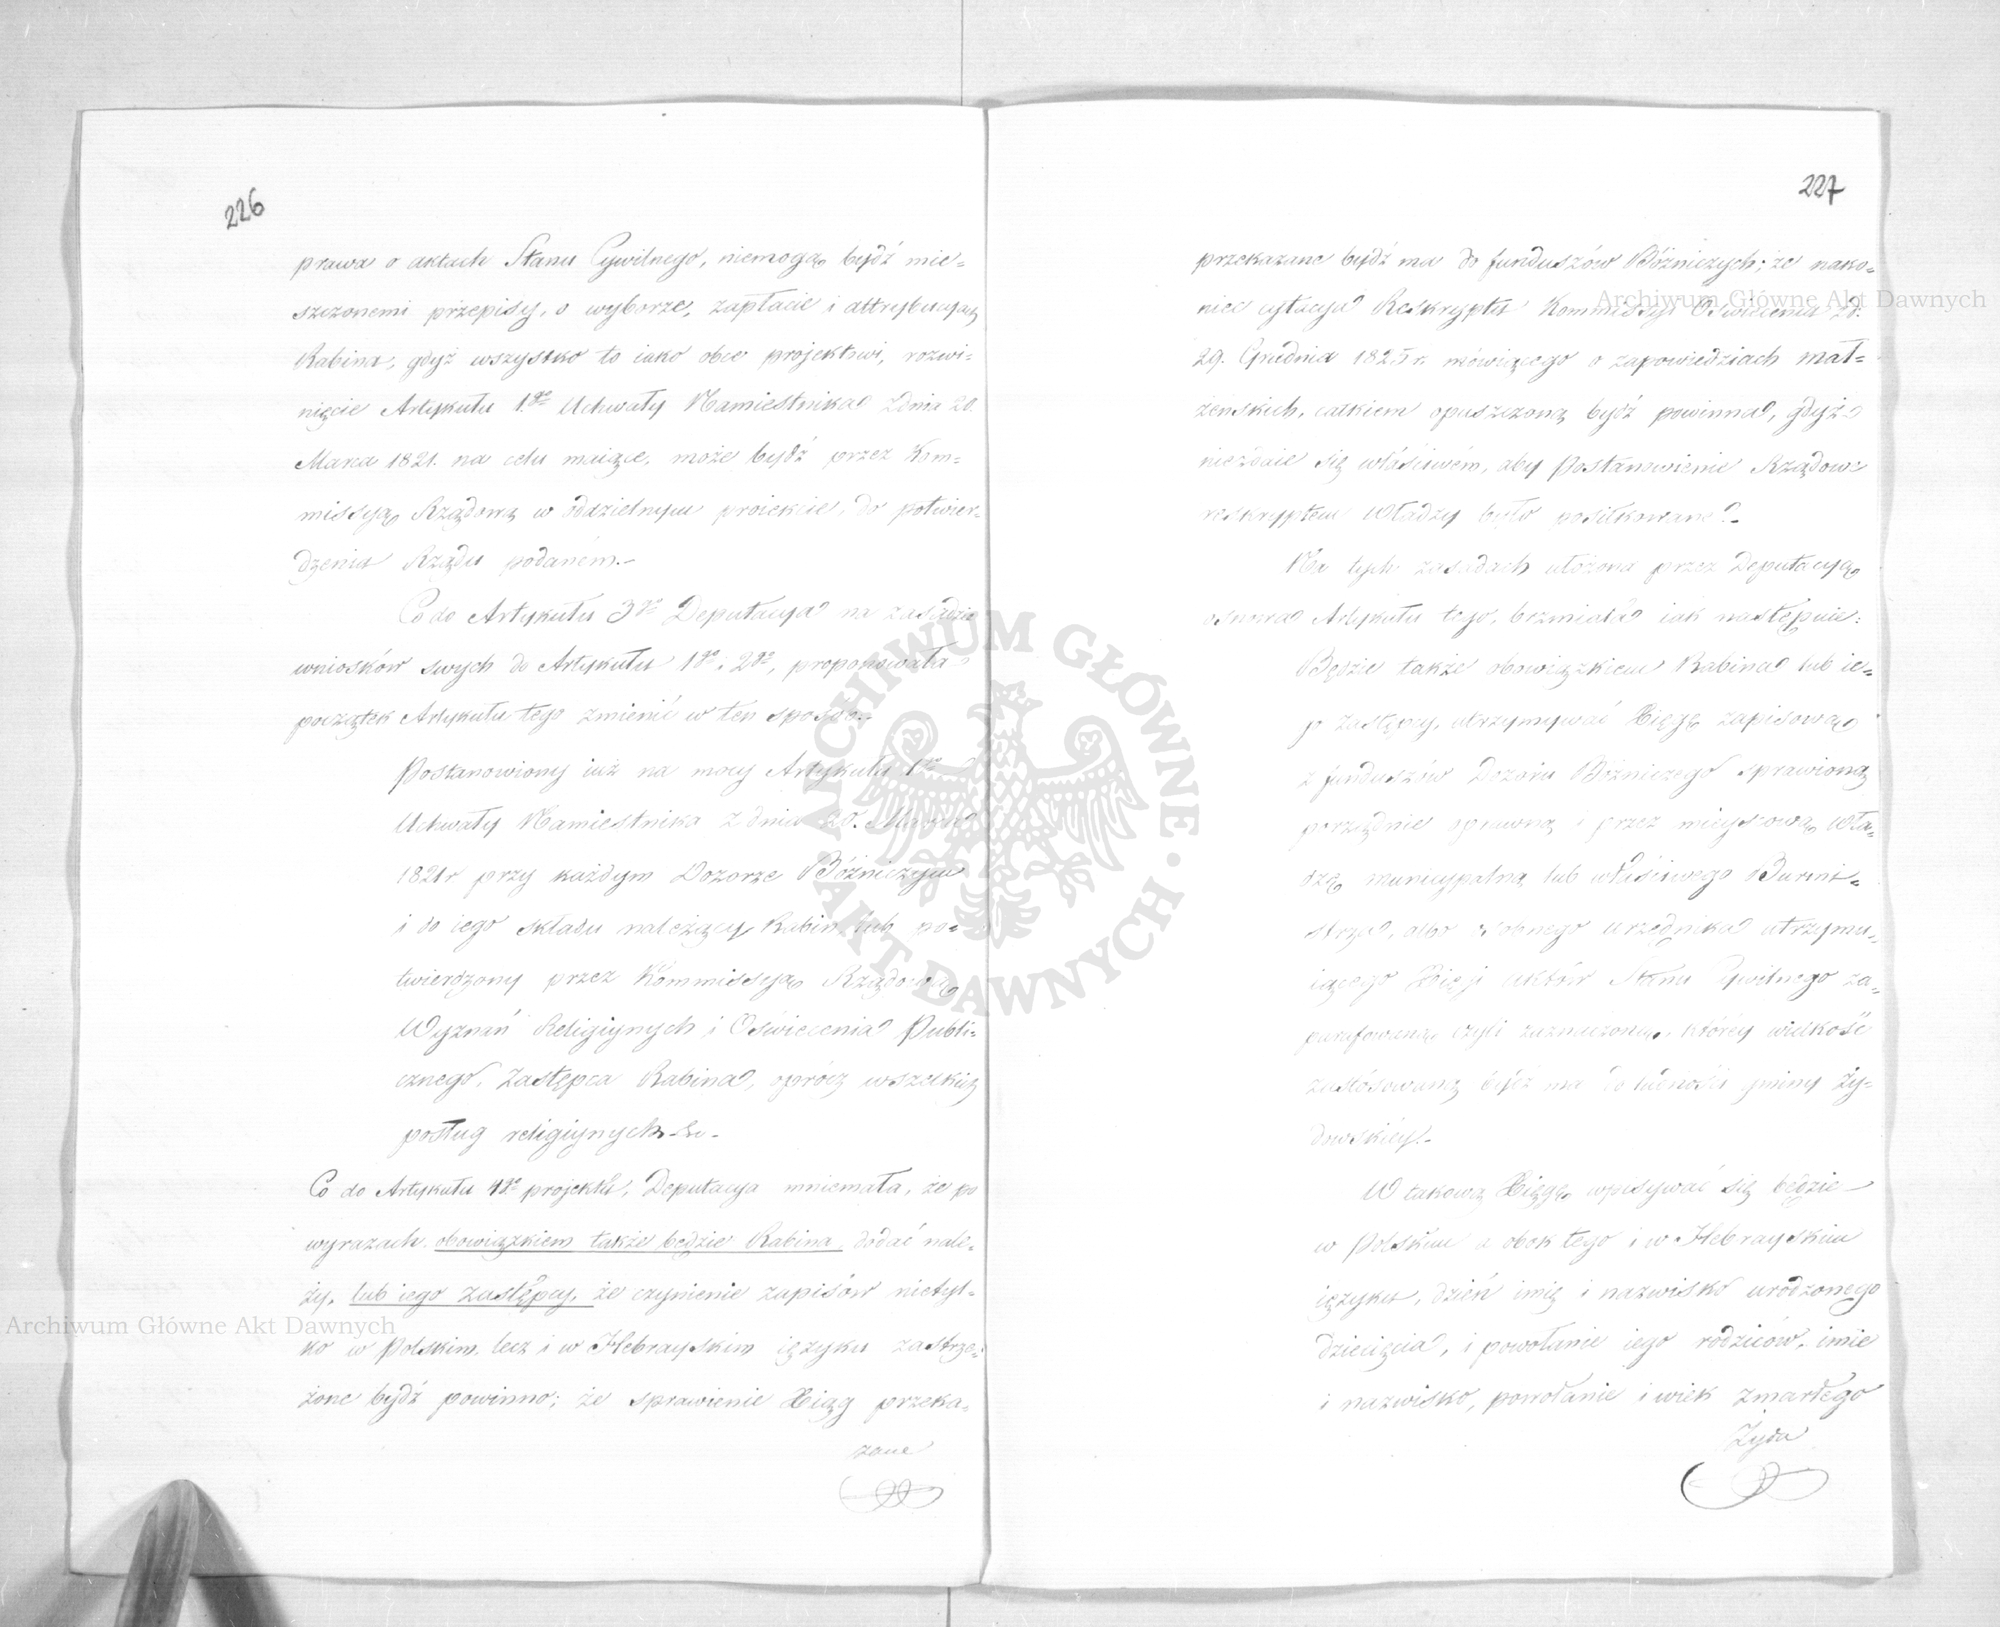 226
prawa o aktach Stanu Cywilnego, niemogą bydź mie=
szczonemi przepisy, o wyborze, zapłacie i attrybucyach
Rabina, gdyż wszystko to iako obce projektowi, rozwi=
nięcie Artykułu 1go Uchwały Namiestnika z dnia 20.
Marca 1821. na celu maiące, może bydź przez Kom=
missyą Rządową w oddzielnym proiekcie, do potwier=
dzenia Rządu podaném.-
Co do Artykułu 3go Deputacya na zasadzie
wniosków swych do Artykułu 1go i 2go, proponowała
początek Artykułu tego zmienić w ten sposób.
Postanowiony iuż na mocy Artykułu 1go
Uchwały Namiestnika z dnia 20. Marca
1821 r przy każdym Dozorze Bóżniczym
i do iego składu należący Rabin, lub po=
twierdzony przez Kommissyą Rządową
Wyznań Religiynych i Oświecenia Publi=
cznego, Zastępca Rabina, oprócz wszelkich
posług religiynych &c.-
Co do Artykułu 4go projektu, Deputacya mniemała, że po
wyrazach obowiązkiem także będzie Rabina, dodać nale=
ży, lub iego zastępcy, że czynienie zapisów nietyl=
ko w Polskim, lecz i w Hebrayskim ięzyku zastrze=
żone bydź powinno; że sprawienie Xiąg przeka=
zane
227
przekazane bydź ma do funduszów Bóżniczych; że nako=
niec cytacya Reskryptu Kommissyi Oświecenia z d.
29. Grudnia 1825 r. mówiącego o zapowiedziach mał=
żeńskich, całkiem opuszczoną bydź powinna, gdyż
niezdaie się właściwém, aby Postanowienie Rządowe
reskryptem Władzy było posiłkowane.-
Na tych zasadach ułożona przez Deputacyą
osnowa Artykułu tego, brzmiała iak następuie:
Będzie także obowiązkiem Rabina lub ie=
go zastępcy, utrzymywać Xięgę zapisową
z funduszów Dozoru Bóżniczego sprawioną
porządnie oprawną i przez mieyscową Wła=
dzę municypalną lub właściwego Burmi=
strza, albo osobnego urzędnika utrzymu=
iącego Xięgi aktów Stanu Cywilnego za=
parafowaną, czyli zaznaczoną, któréy wielkość
zastósowaną bydź ma do ludności gminy Ży=
dowskiéy.-
W takową Xięgę wpisywać się będzie
w Polskim a obok tego i w Hebrayskim
ięzyku, dzień imię i nazwisko urodzonego
dziecięcia, i powołanie iego rodziców, imie
i nazwisko, powołanie i wiek zmarłego
Żyda
Archiwum Główne Akt Dawnych
Archiwum Główne Akt Dawnych
ARCHIWUM GŁÓWNE · AKT DAWNYCH ·